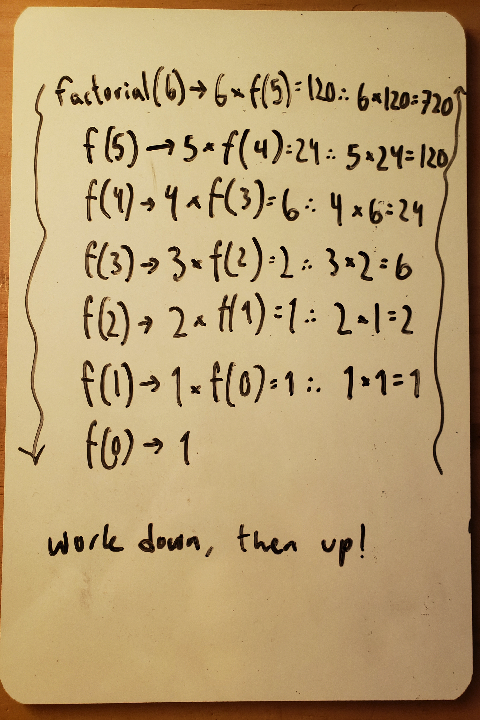 factorial(6) → 6 * f(5) = 120 ∴ 6 * 120 = 720
f(5) → 5 * f(4) = 24 ∴ 5 * 24 = 120
f(4) → 4 * f(3) = 6 ∴ 4 * 6 = 24
f(3) → 3 * f(2) = 2 ∴ 3 * 2 = 6
f(2) → 2 * f(1) = 1 ∴ 2 * 1 = 2
f(1) → 1 * f(0) = 1 ∴ 1 * 1 = 1
f(0) → 1
work down, then up!